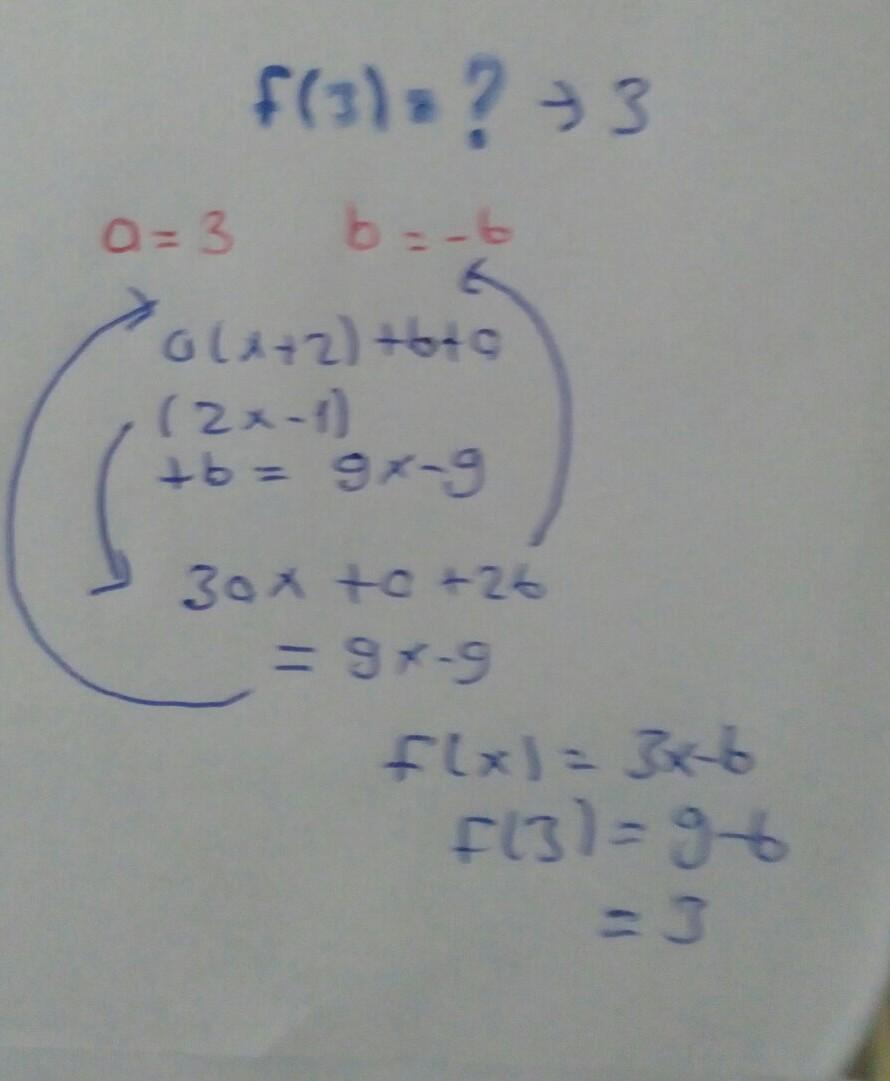 f(3) = ? → 3
a = 3 b = -6
a(x+2)+b+a
(2x-1)
+b = 9x-9
3ax +a +2b
= 9x-9
f(x) = 3x-6
f(3) = 9-6
= 3